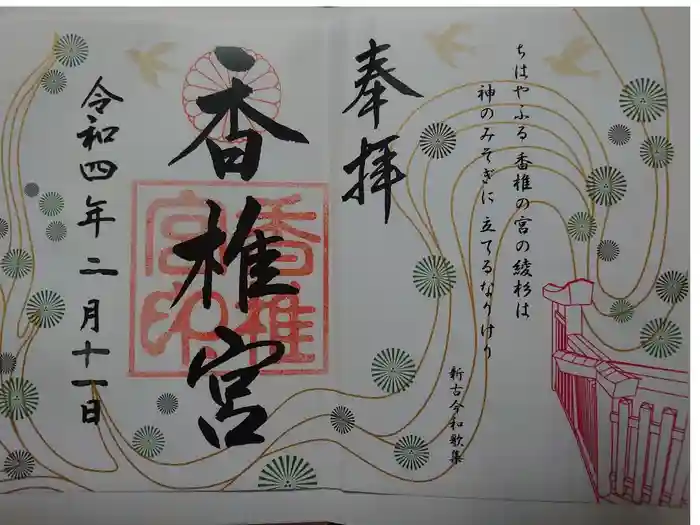 ちはやふる 香椎の宮の綾杉は
神のみそぎに 立てるなりけり
新古今和歌集
奉拝
香椎宮
香椎
宮印
令和四年二月十一日